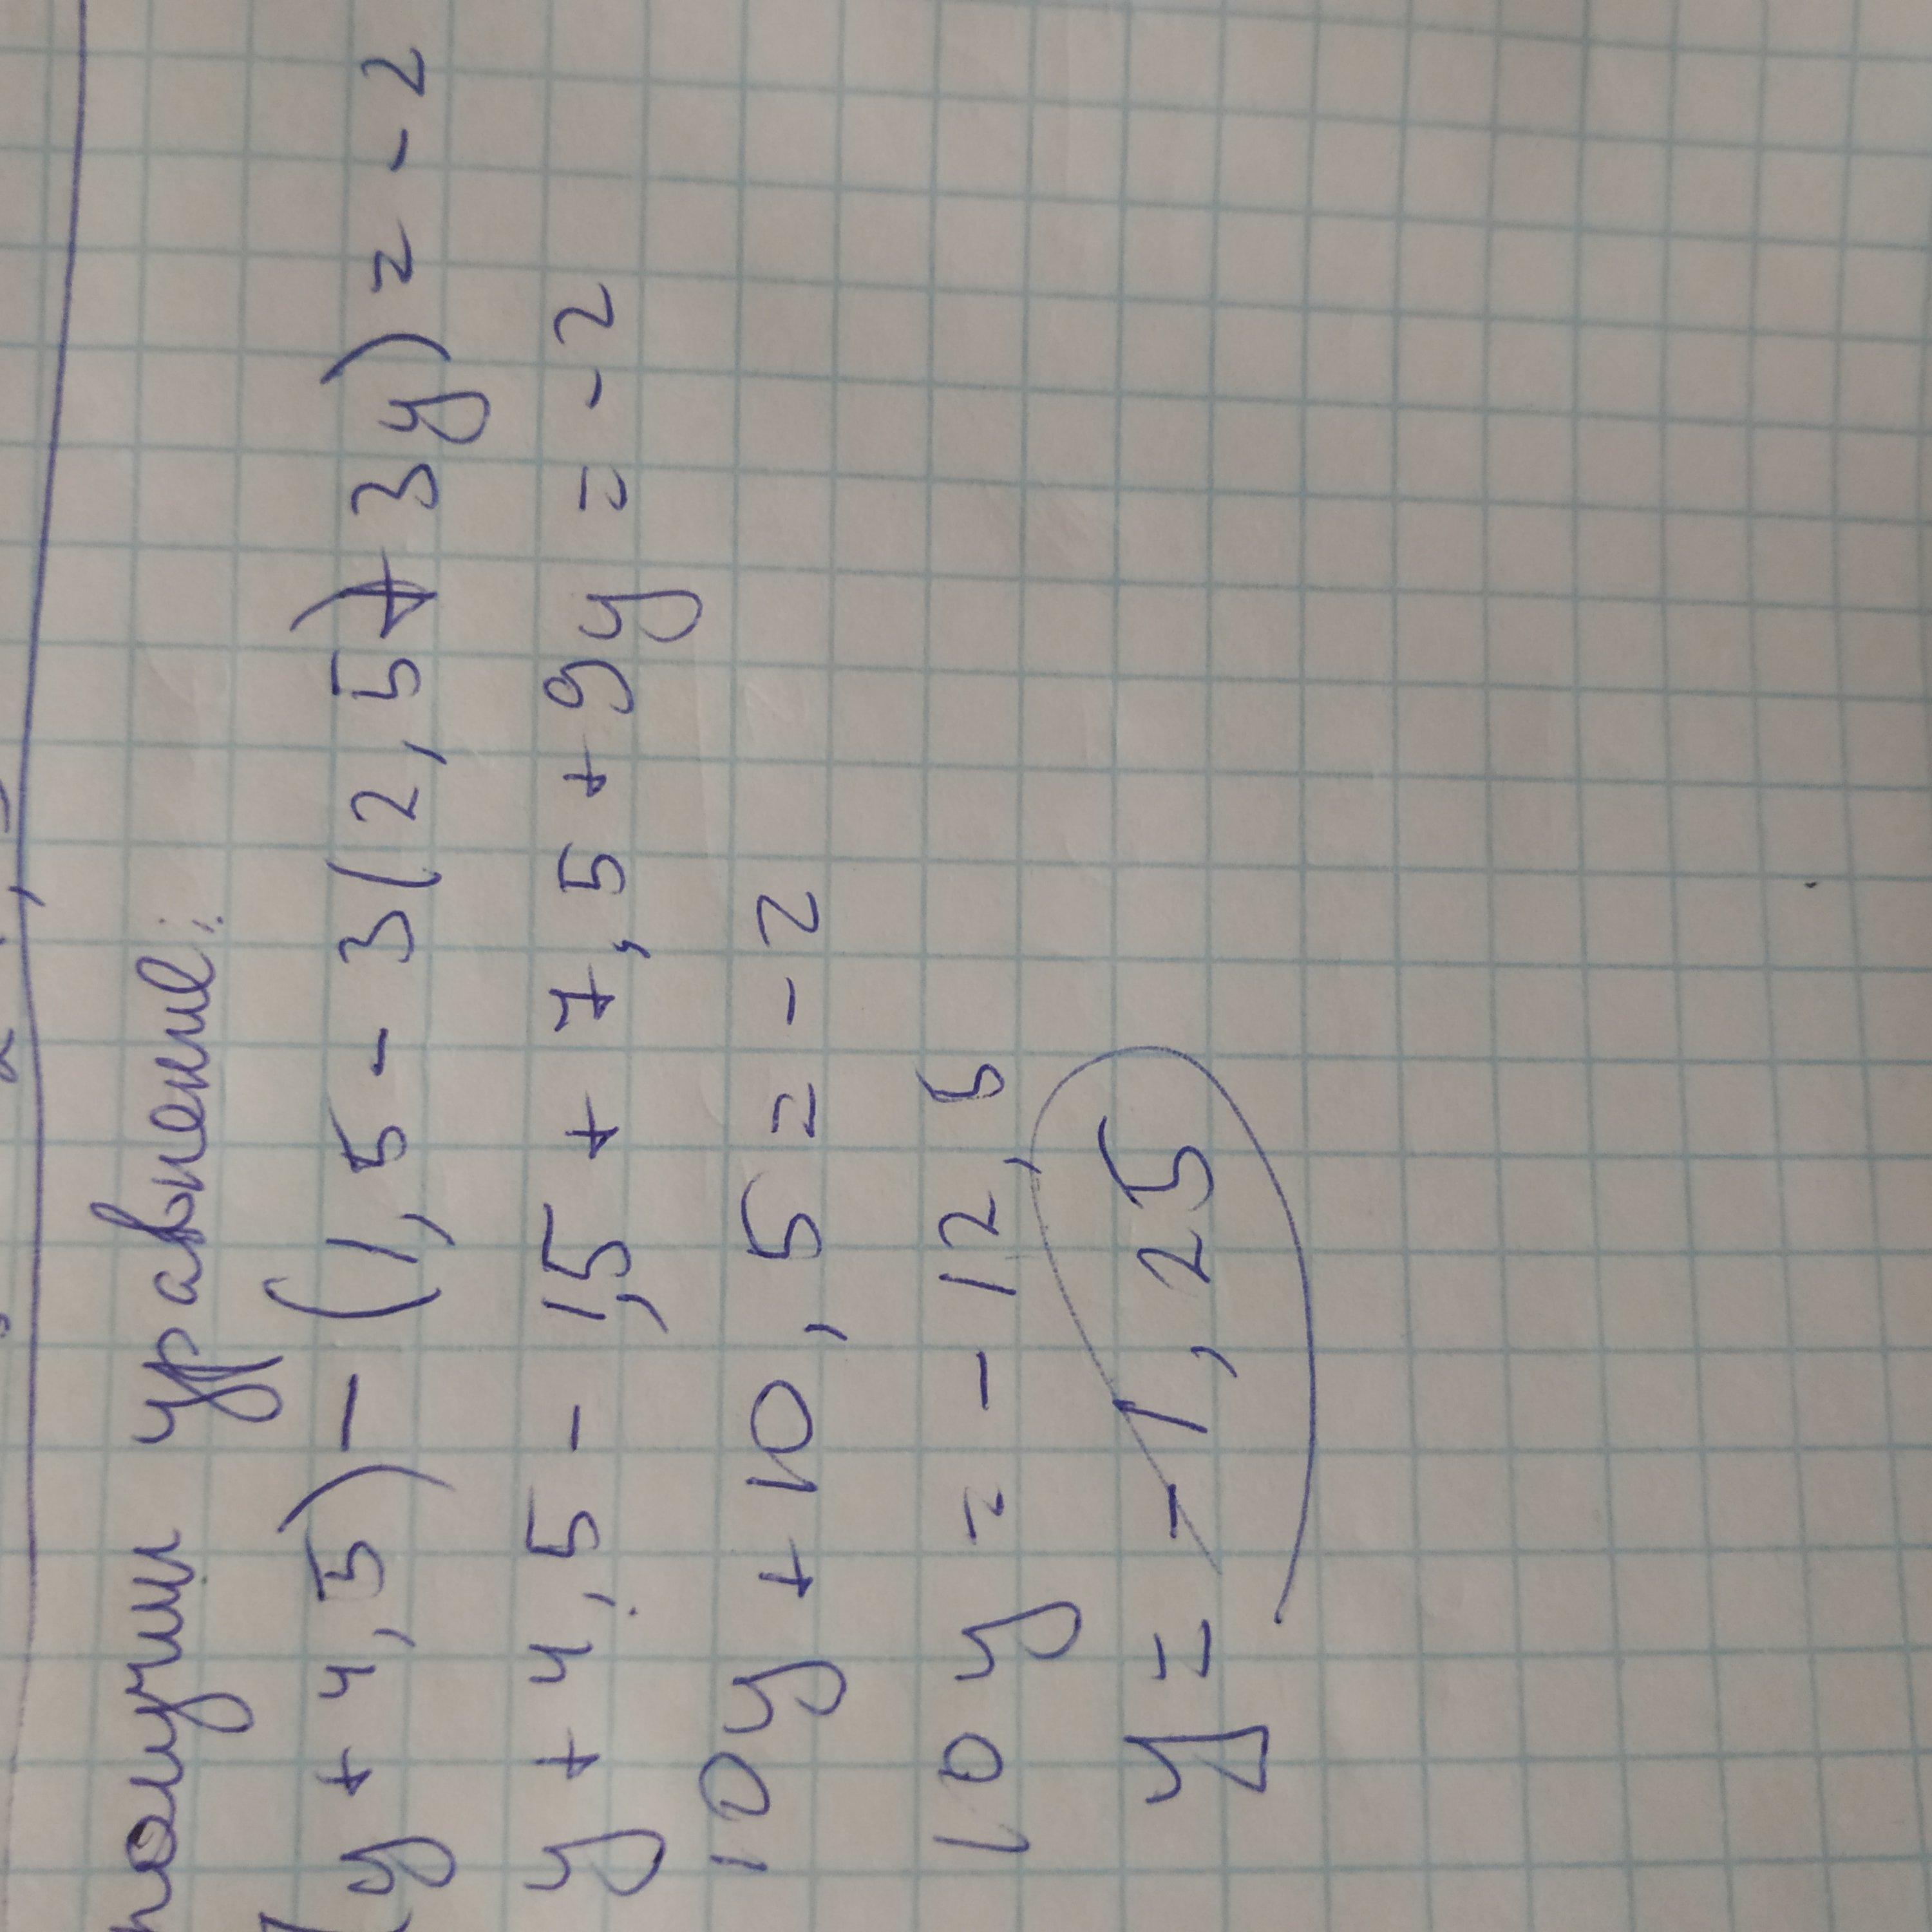 получим уравнение:
(y + 4,5) - (1,5 - 3(2,5) + 3y) = - 2
y + 4,5 - 1,5 + 7,5 + 9y = - 2
10y + 10,5 = - 2
10y = - 12,5
y = - 1,25